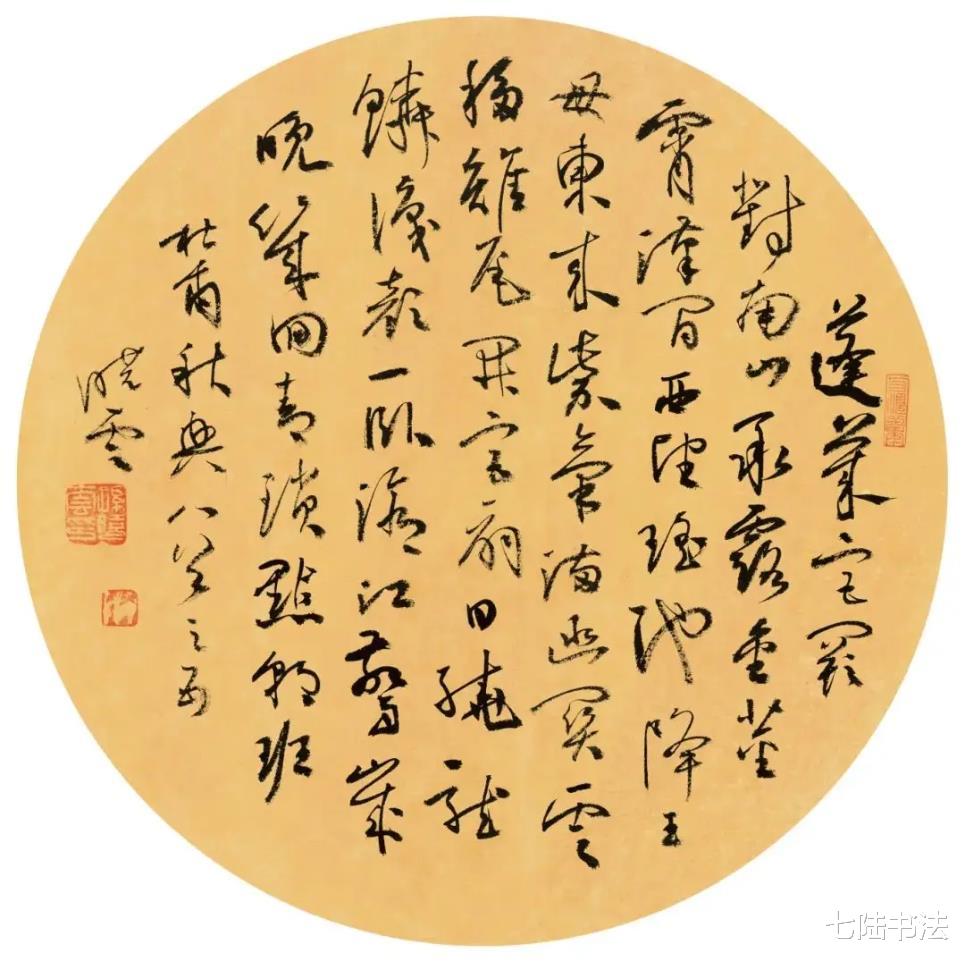 蓬萊宮闕
對南山承露金莖
霄漢間西望瑤池降王
母東來紫氣滿函關雲
移雉尾開宮扇日繞龍
鱗識顏一臥滄江驚歲
晚幾回青瑣點朝班
杜甫秋興八首之五
曉雲
七陆书法